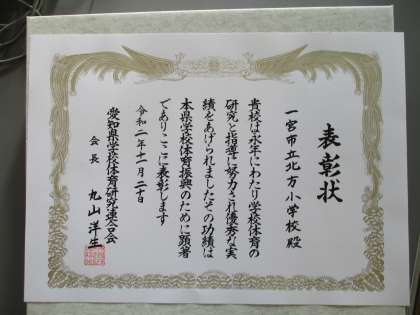 表彰状
一宮市立北方小学校殿
貴校は永年にわたり学校体育の
研究と指導に努力され優秀な実
績をあげられましたその功績は
本県学校体育振興のために顕著
でありここに表彰します
令和二年十一月二十日
愛知県学校体育研究連合会
会長 丸山洋生